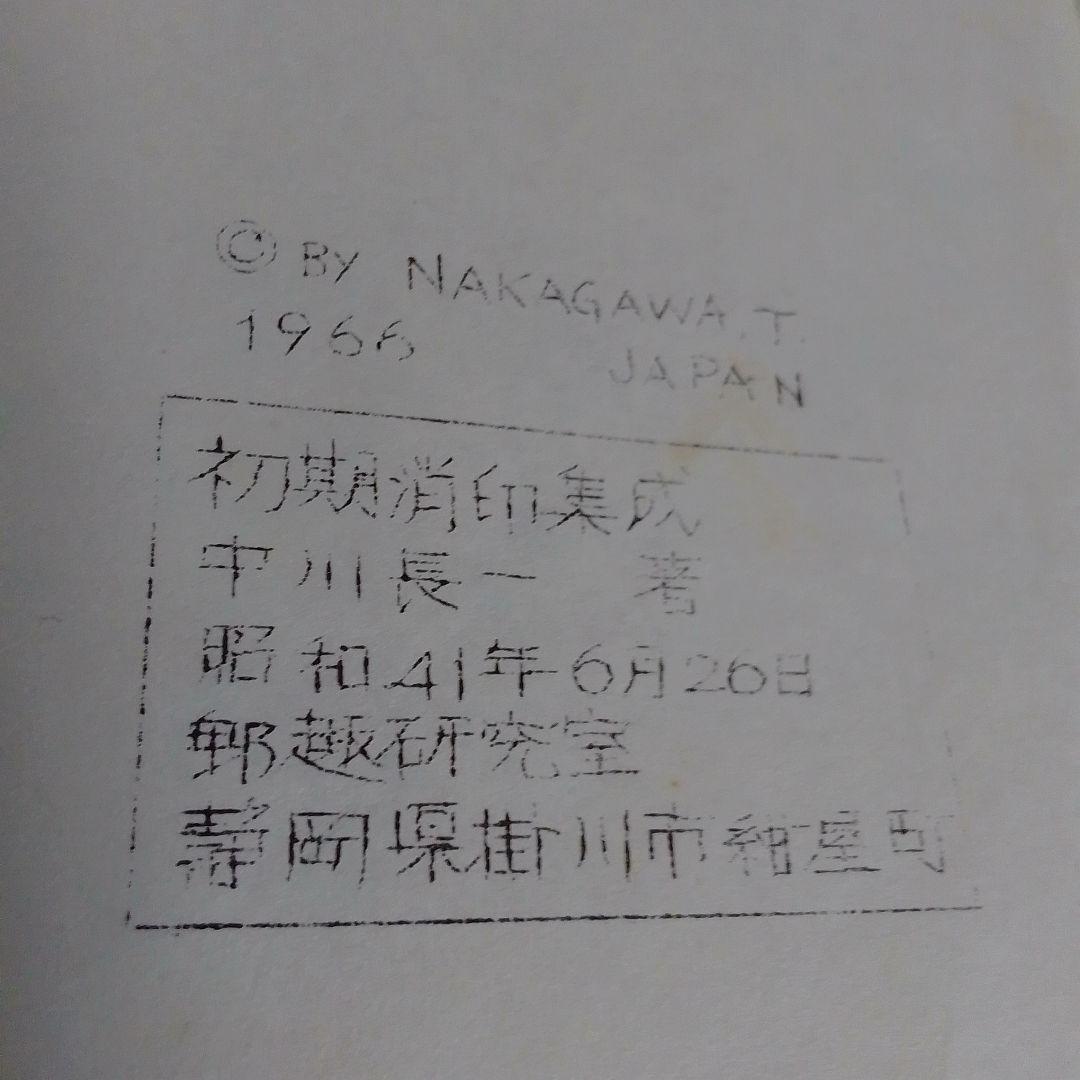 © BY NAKAGAWA.T.
1966 JAPAN
初期消印集成
中川長一 著
昭和41年6月26日
郵趣研究室
静岡県掛川市紺屋町